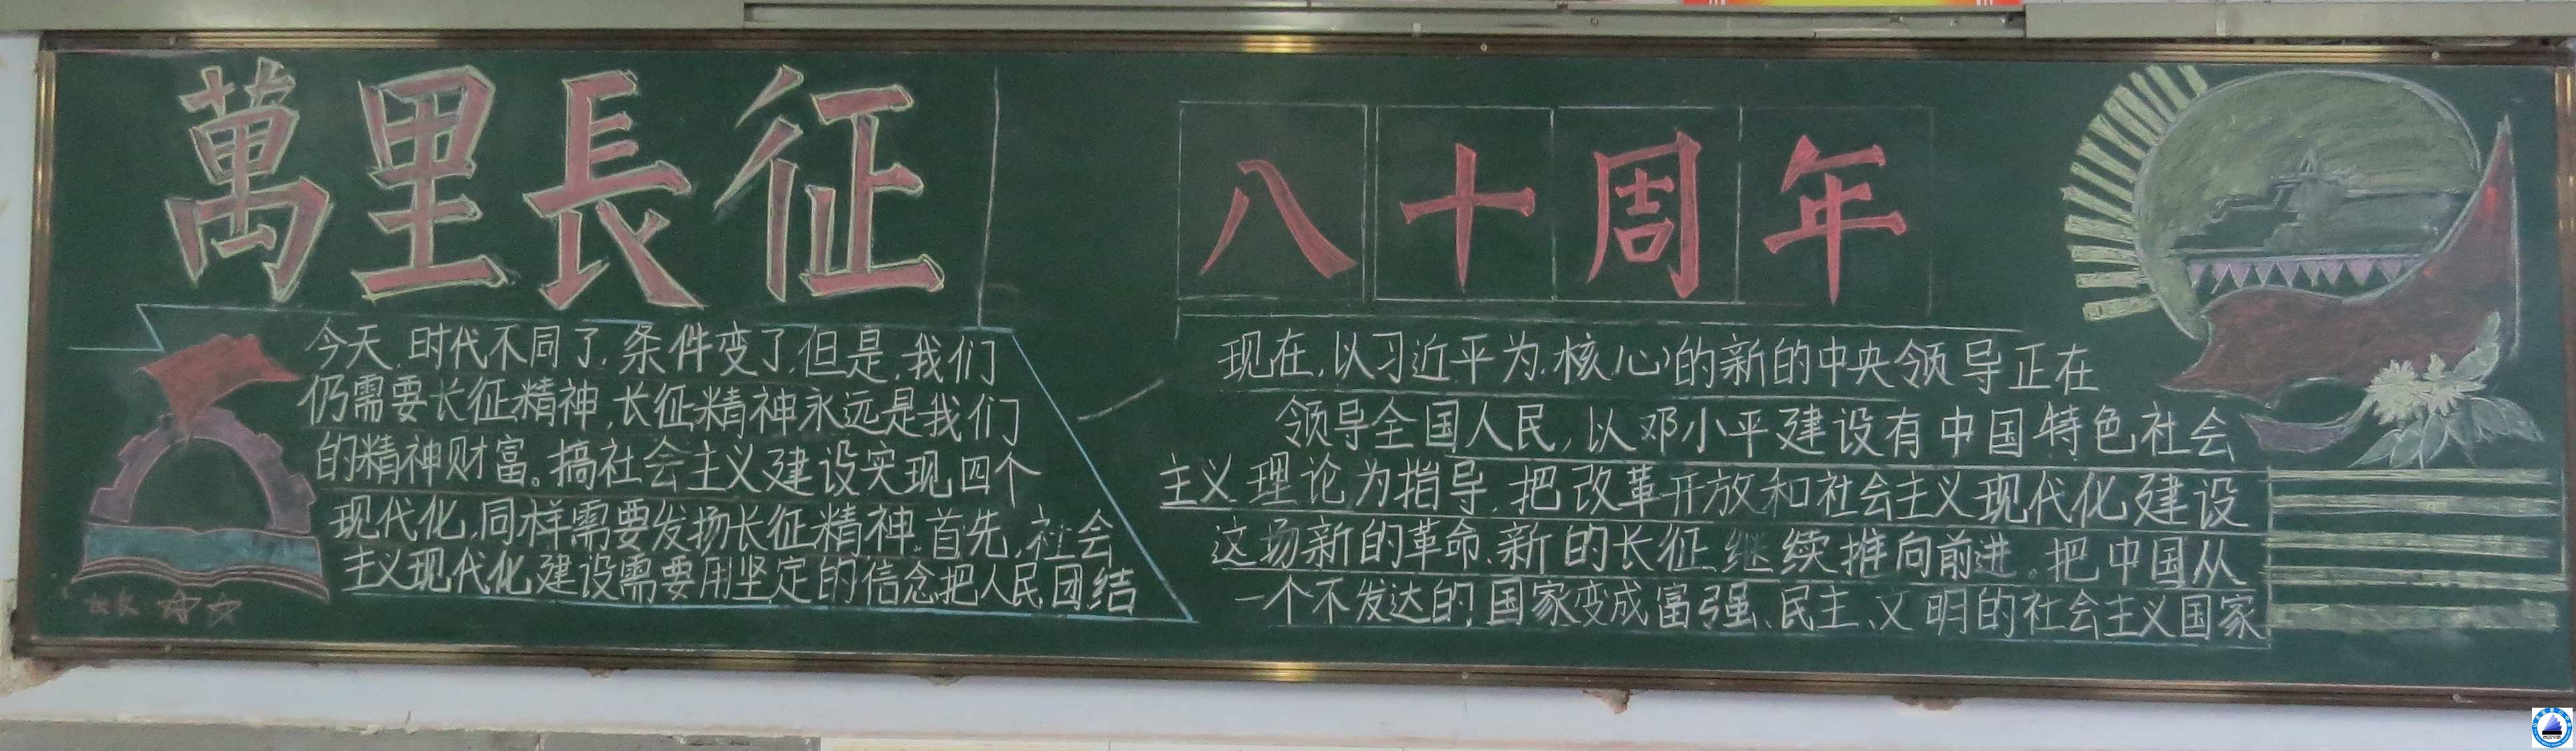 萬里長征
八十周年
今天,时代不同了,条件变了,但是,我们
仍需要长征精神,长征精神永远是我们
的精神财富。搞社会主义建设实现四个
现代化,同样需要发扬长征精神。首先,社会
主义现代化建设需要用坚定的信念把人民团结
现在,以习近平为核心的新的中央领导正在
领导全国人民,以邓小平建设有中国特色社会
主义理论为指导,把改革开放和社会主义现代化建设
这场新的革命、新的长征继续推向前进。把中国从
一个不发达的国家变成富强、民主、文明的社会主义国家